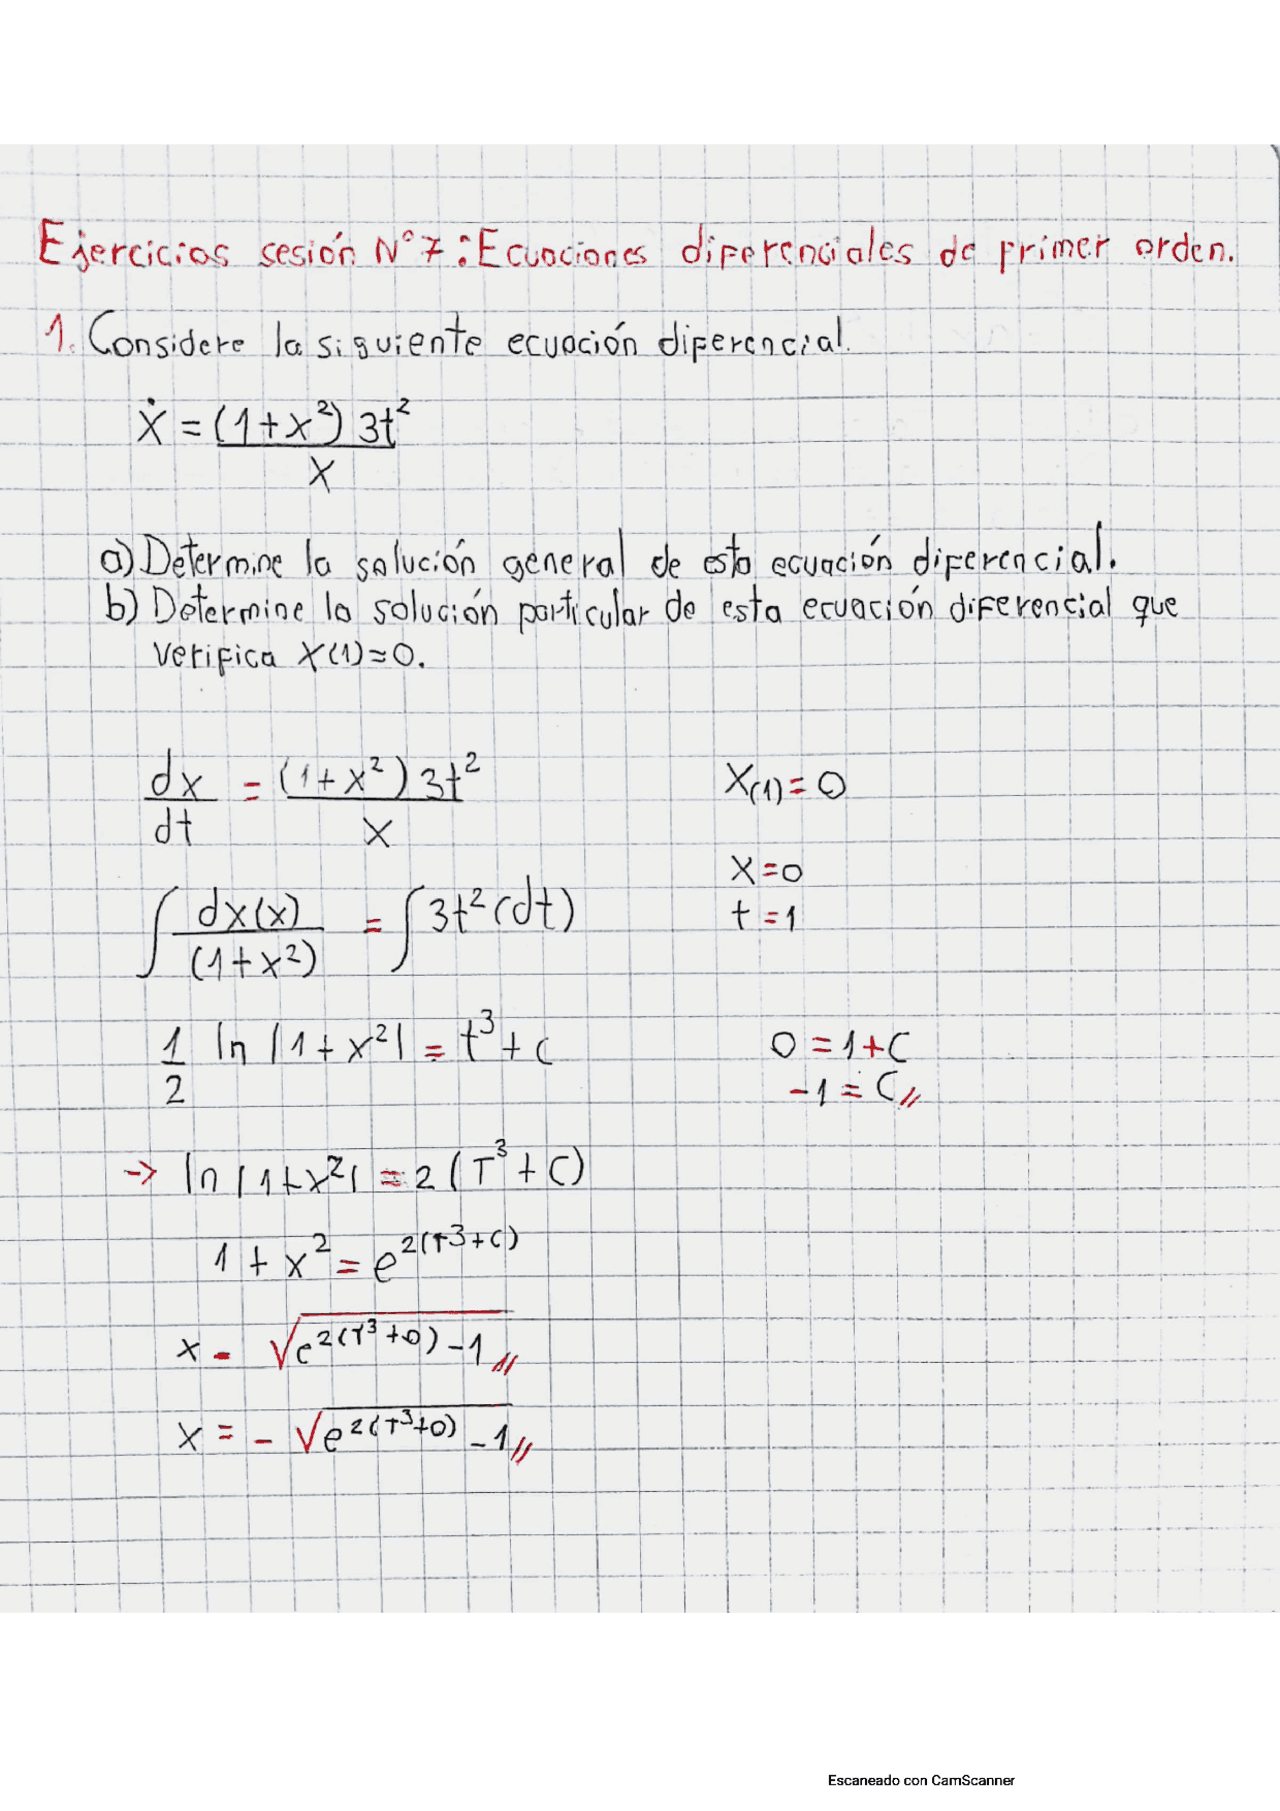 Ejercicios sesión N°7: Ecuaciones diferenciales de primer orden.
1. Considere la siguiente ecuación diferencial.
ẋ = (1+x²) 3t²
x
a) Determine la solución general de esta ecuación diferencial.
b) Determine la solución particular de esta ecuación diferencial que
verifica x(1)=0.
dx/dt = (1+x²) 3t² / x
x(1) = 0
x = 0
t = 1
∫ dx(x)/(1+x²) = ∫ 3t² (dt)
1/2 ln |1+x²| = t³ + c
0 = 1 + C
-1 = C //
→ ln |1+x²| = 2 (T³ + C)
1 + x² = e^2(T³+C)
x = √(e^2(T³+0) - 1) //
x = - √(e^2(T³+0) - 1) //
Escaneado con CamScanner